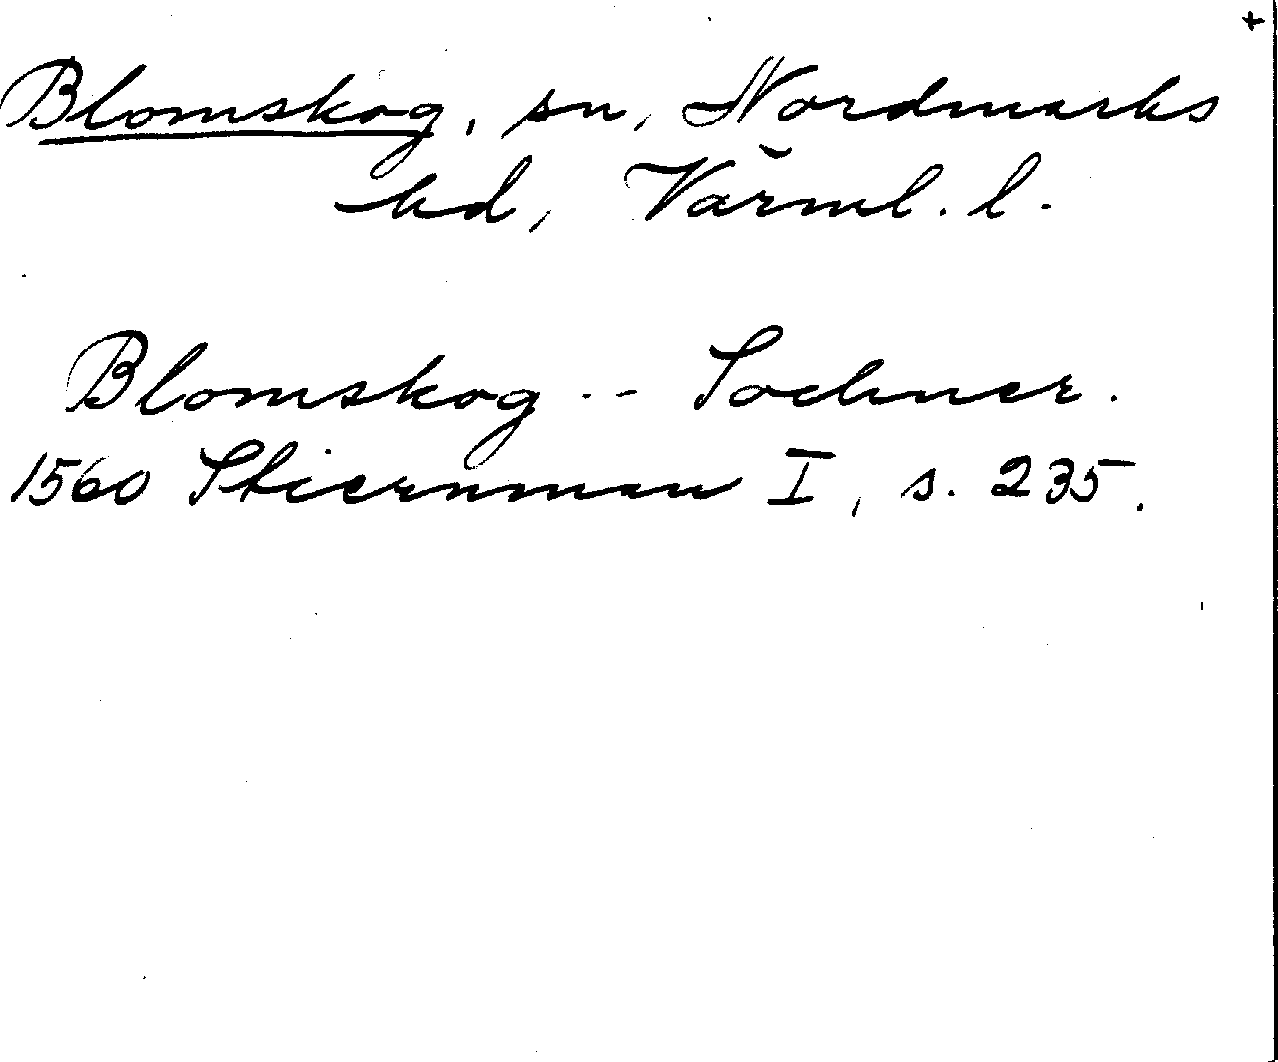 +
Blomskog, sn, Nordmarks
hd, Värml. l.
Blomskog -- Sochner.
1560 Stiernman I, s. 235.